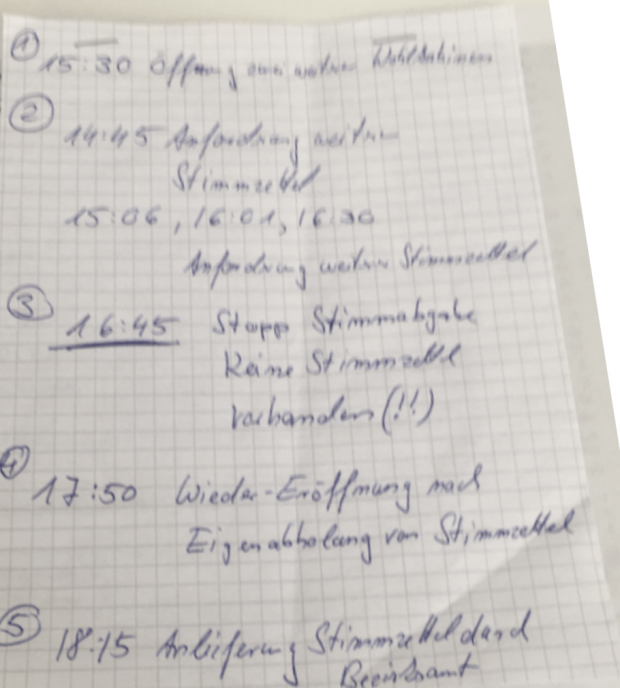 ① 15:30 Öffnung zwei weiterer Wahlkabinen
② 14:45 Anforderung weiterer
Stimmzettel
15:06, 16:01, 16:30
Anforderung weiterer Stimmzettel
③ 16:45 Stopp Stimmabgabe
Keine Stimmzettel
vorhanden (!!)
④ 17:50 Wieder-Eröffnung nach
Eigenabholung von Stimmzettel
⑤ 18:15 Anlieferung Stimmzettel durch
Bezirksamt